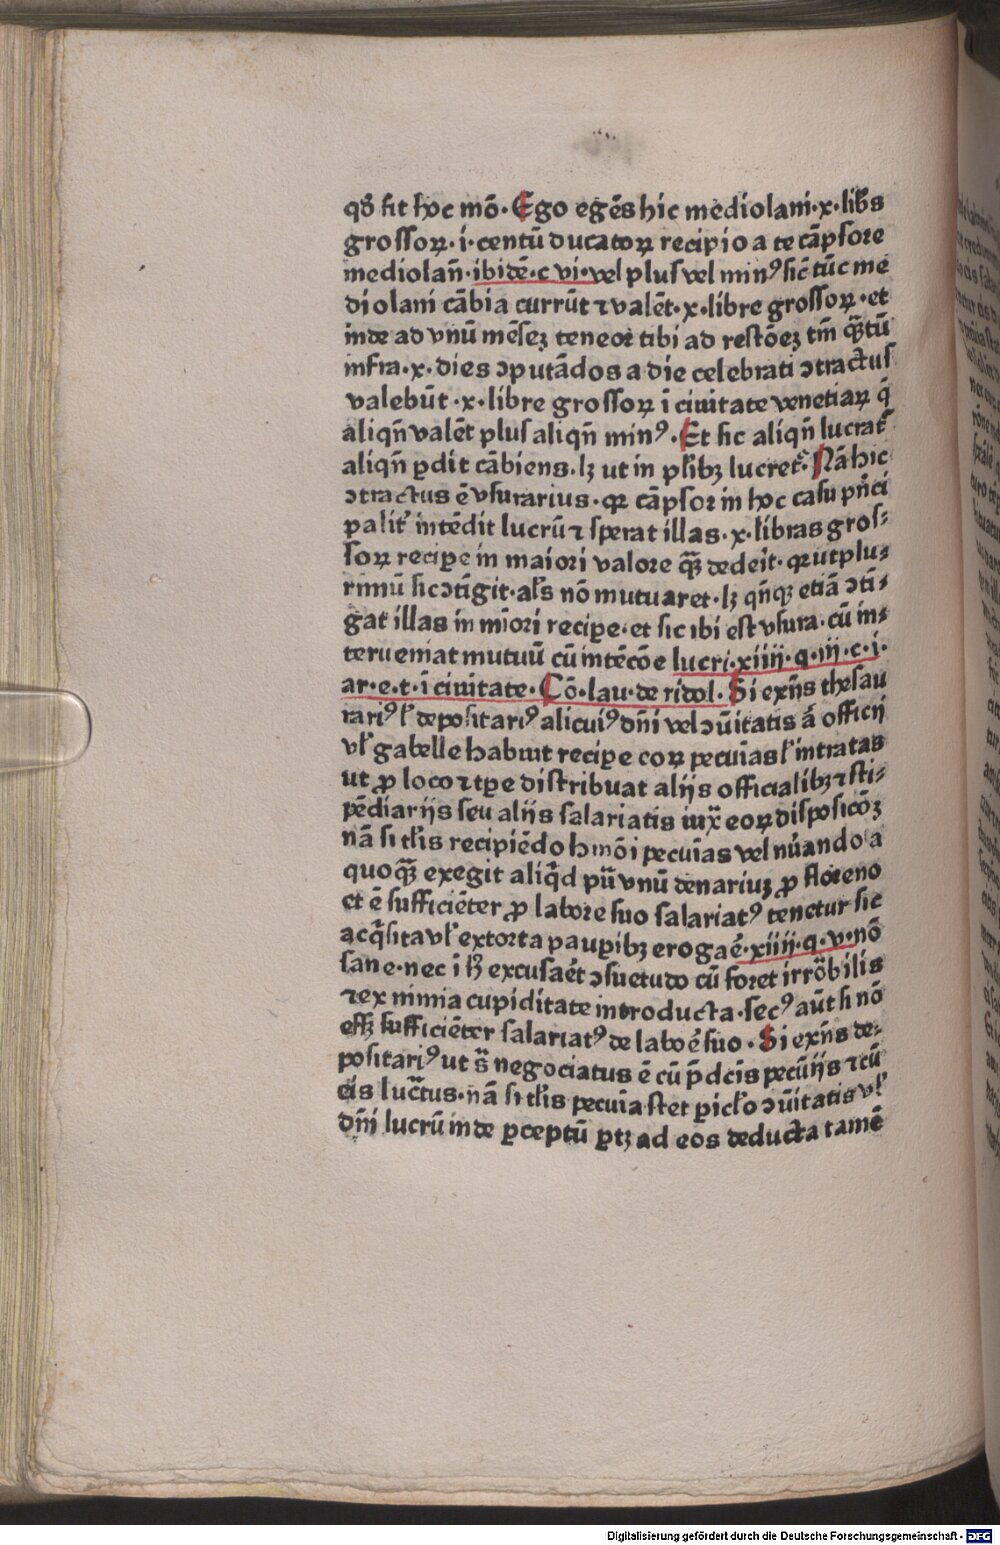 qď fit hoc mō. Ego egēs hic mediolani.x.libꝛs
grossoꝝ.i.centū ducatoꝝ recipio a te cāpsore
mediolan̄.ibidē.c vi.vel plus vel minꝰ sic̄ tūc me
diolani cābia currūt ⁊ valēt.x.libre grossoꝝ.et
inde ad vnū mēseꝫ teneor tibi ad restōeꝫ tm̄ qꝫtū
infra.x.dies ↄputādos a die celebrati ↄtractus
valebūt.x.libre grossoꝝ ī ciuitate venetiaꝝ q̄
aliqn̄ valēt plus aliqn̄ minꝰ. Et sic aliqn̄ lucrat᷑
aliqn̄ ꝑdit cābiens.lꝫ ut in pl̕ibꝫ lucret᷑. Nā hic
ↄtractus ē vsurarius.qꝛ cāpsor in hoc casu pn̄ci
palit᷑ intēdit lucrū ⁊ sperat illas.x.libras gros⸗
soꝝ recipe in maiori valore qꝫ̄ dedeīt.qꝛ ut plu⸗
rimū sic ↄtīgit.al̕s nō mutuaret.lꝫ qn̄qꝫ etiā ↄtī⸗
gat illas in mīori recipe.et sic ibi est vsura.cū in⸗
terueniat mutuū cū intēcōe lucri.xiiij.q.iij.c.i.
ar.e.t.ī ciuitate. Cō.lau.de ridol. Si exn̄s thesau
rariꝰ l̕ depositariꝰ alicuiꝰ dn̄i vel ↄūitatis ā officij
vl̕ gabelle habuit recipe eoꝝ pecuīas l̕ intratas
ut ꝓ loco ⁊ tꝑe distribuat alijs officialibꝫ ⁊ sti⸗
pēdiarijs seu alijs salariatis iux̄ eoꝝ disposicōꝫ
nā si tl̕is recipiēdo hmōi pecuīas vel nūando a
quoqꝫ̄ exegit aliq̄d pū vnū denariuꝫ ꝓ floreno
et ē sufficiēter ꝓ labore suo salariatꝰ tenetur sic
acq̄sita vl̕ extorta pauꝑibꝫ erogaē.xiiij.q.v.nō
sane.nec ī h̄ excusaēt ↄsuetudo cū foret irrōbilis
⁊ ex nimia cupiditate introducta.secꝰ aūt si nō
esꝫ sufficiēter salariatꝰ de laboē suo. Si exn̄s de⸗
positariꝰ ut s̄ negociatus ē cū p̄dcīs pecūijs ⁊ cū
eis luc̄tus.nā si tl̕is pecuīa stet ꝑicl̕o ↄūitatis vl̕
dn̄i lucrū inde ꝑceptū ꝑtꝫ ad eos deducta tamē
Digitalisierung gefördert durch die Deutsche Forschungsgemeinschaft - DFG